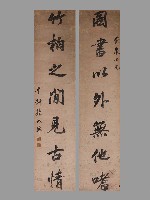 圖書以外無他嗜
竹柏之間見古情